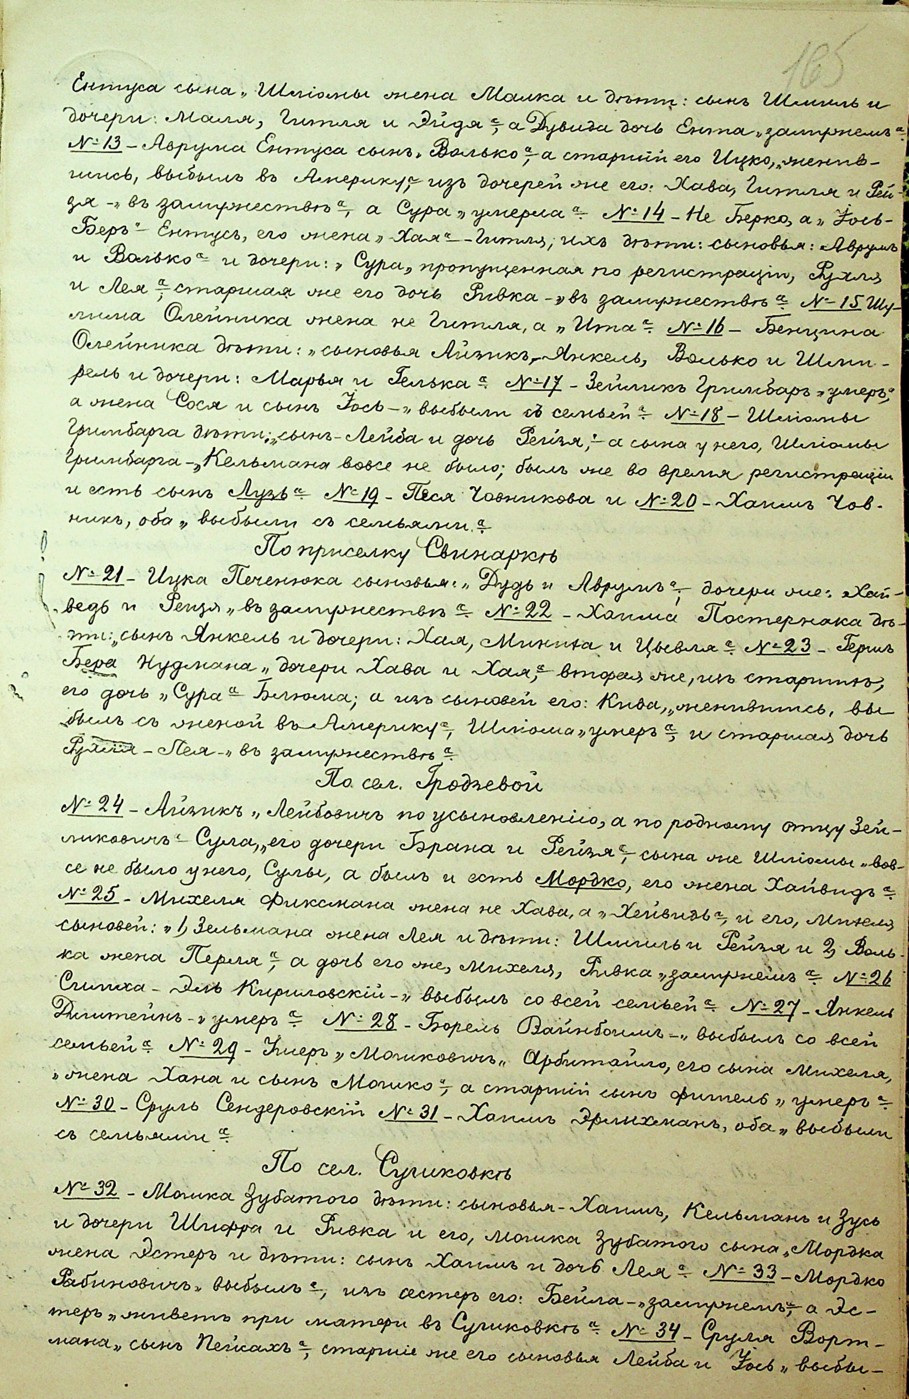 165
Ентуса сына „Шліомы жена Малка и дѣти: сынъ Шмиль и
дочери: Маля, Гитля и Эйдя“, а Дувида дочь Ента „замужемъ“.
№ 13 – Аврума Ентуса сынъ „Волько“, а старшій его Ицко, „женив-
шись, выбылъ въ Америку“, изъ дочерей же его: Хава, Гитля и Рей-
зя – „въ замужествѣ“, а Сура „умерла“. № 14 – Не Берко, а „Іось-
Беръ“ Ентусъ, его жена „Хая“ – Гитля, ихъ дѣти: сыновья: Аврумъ
и Волько“ и дочери: „Сура, пропущенная по регистраціи, Рухля
и Лея“, старшая же его дочь Ривка – „въ замужествѣ“. № 15 Шу-
лима Олейника жена не Гитля, а „Ита“. № 16 – Бенціона
Олейника дѣти: „сыновья Айзикъ-Янкель, Волько и Шми-
рель и дочери: Марья и Гелька“. № 17 – Зейликъ Гримбаръ „умеръ“,
а жена Сося и сынъ Іось – „выбыли съ семьей“. № 18 – Шліомы
Гримбарга дѣти: „сынъ – Лейба и дочь Рейзя“, – а сына у него, Шліомы
Гримбарга – „Кельмана вовсе не было; былъ же во время регистраціи
и есть сынъ Лузь“. № 19 – Песя Човникова и № 20 – Хаимъ Чов-
никъ, оба „выбыли съ семьями“.
По приселку Свинаркѣ
№ 21 – Ицка Печенюка сыновья: „Дудь и Аврумъ“, дочери же: „Хай-
ведь и Рейзя „въ замужествѣ“. № 22 – Хаима Постернака дѣ-
ти: „сынъ Янкель и дочери: Хая, Миниха и Цывля“. № 23 – Гершъ
Бера Нудмана „дочери Хава и Хая“, – вторая же, изъ старшихъ,
его дочь „Сура“ – Блюма; а изъ сыновей его: Кива, „женившись, вы-
былъ съ женой въ Америку“, Шліома „умеръ“, и старшая дочь
Рухля – Лея – „въ замужествѣ“.
По сел. Гродзевой
№ 24 – Айзикъ „Лейбовичъ по усыновленію, а по родному отцу Зей-
ликовичъ“ Сула, „его дочери Брана и Рейзя“, сына же Шліомы „вов-
се не было у него, Сулы, а былъ и есть Мордко, его жена Хайвидъ“.
№ 25 – Михеля Фиксмана жена не Хава, а „Хейвизъ“, и его, Михеля
сыновей: „1, Зельмана жена Лея и дѣти: Шмиль и Рейзя и 2, Воль-
ка жена Перля“, а дочь его же, Михеля, Ривка „замужемъ“. № 26
Симха-Эль Кириловскій – „выбылъ со всей семьей“. № 27 – Янкель
– „умеръ“. № 28 – Борель Вайнбоимъ – „выбылъ со всей
семьей“. № 29 – Умеръ „Мошковичъ“ Арбитайло, его сына Михеля,
„жена Хана и сынъ Мошко“, а старшій сынъ Фишель „умеръ“.
№ 30 – Сруль Сендеровскій № 31 – Хаимъ Эрлихманъ, оба „выбыли
съ семьями“.
По сел. Сушковкѣ
№ 32 – Мошка Зубатого дѣти: сыновья – Хаимъ, Кельманъ и Зусь
и дочери Шифра и Ривка и его, Мошка Зубатого сына, „Мордка
жена Эстеръ и дѣти: сынъ Хаимъ и дочь Лея“. № 33 – Мордко
Рабиновичъ „выбылъ“, изъ сестеръ его: Бейла – „замужемъ“, а Эс-
теръ „живетъ при матери въ Сушковкѣ“. № 34 – Сруля Ворт-
мана „сынъ Пейсахъ“, старшіе же его сыновья Лейба и Іось „выбы-